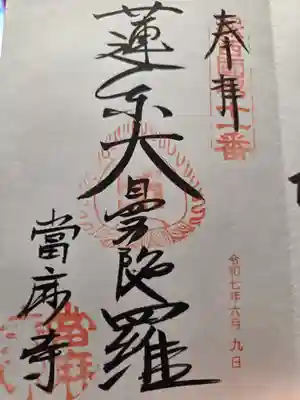 奉拝
十一番
令和七年六月九日
蓮糸大曼陀羅
當麻寺